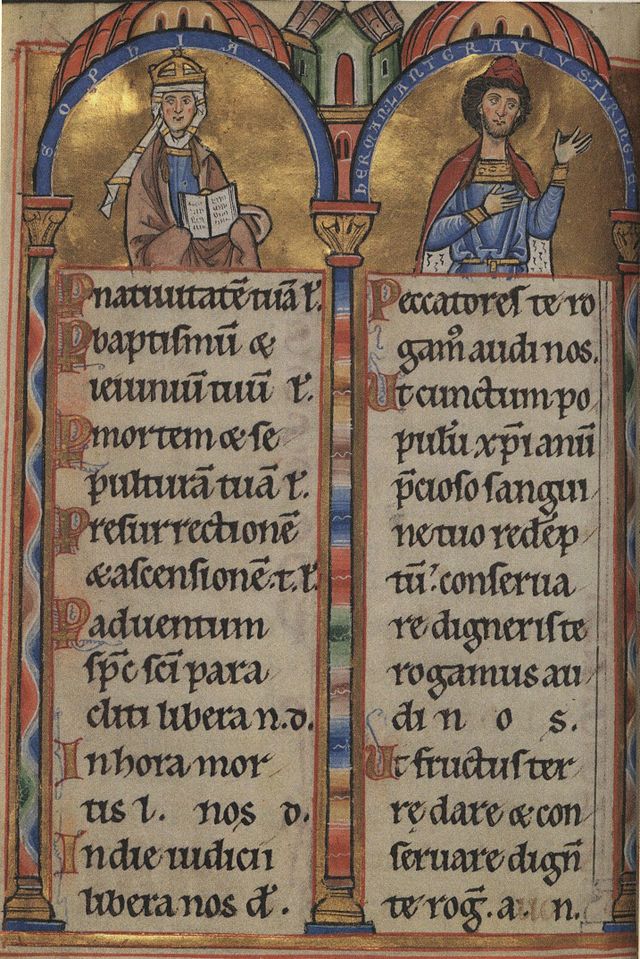 SOPHIA
HERMAN LANTGRAVIUS TURINGIE
P nativitatē tuā l.
P baptismū &
ieiuniū tuū l.
P mortem & se
pulturā tuā l.
P resurrectionē
& ascensionē. t. l.
P adventum
sp̄c sc̄i para
cliti libera n. d.
In hora mor
tis l. nos d.
In die iudicii
libera nos d̄.
Peccatores te ro
gam᷒ audi nos.
Ut cunctum po
pulū xp̄ianū
p̄cioso sangui
ne tuo redēp
tū. conserva
re digneris te
rogamus au
di n o s.
Ut fructus ter
rę dare & con
servare dign̄
te roḡ. a. n.